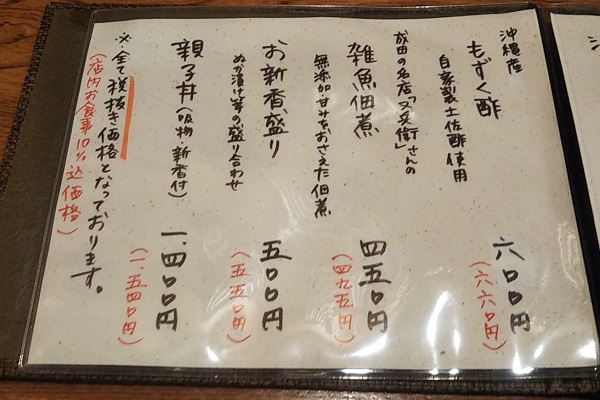 沖縄産
もずく酢
自家製土佐酢使用
六〇〇円
(六六〇円)
成田の名店「又兵衛」さんの
雑魚佃煮
無添加甘みをおさえた佃煮
四五〇円
(四九五円)
お新香盛り
ぬか漬け等の盛り合わせ
五〇〇円
(五五〇円)
親子丼(吸物・新香付)
一、四〇〇円
(一、五四〇円)
※全て税抜き価格となっております。
(店内お食事10%込価格)